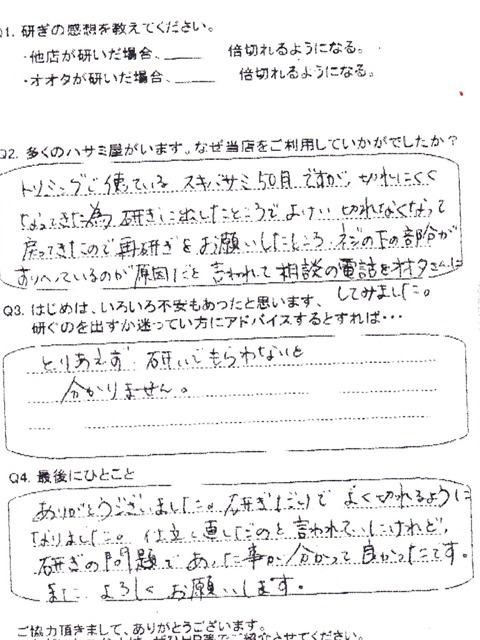 Q1. 研ぎの感想を教えてください。
・他店が研いだ場合、＿＿＿ 倍切れるようになる。
・オオタが研いだ場合、＿＿＿ 倍切れるようになる。
Q2. 多くのハサミ屋がいます。なぜ当店をご利用していかがでしたか？
トリミングで使っている スキバサミ50目 ですが、切れにくく
なってきた為 研ぎに出したところで よけい 切れなくなって
戻ってきたので 再研ぎを お願いしたところ ネジの下の部分が
すりへっているのが 原因だと 言われて 相談の電話をオオタさんに
してみました。
Q3. はじめは、いろいろ不安もあったと思います、
研ぐのを出すか迷ってい方にアドバイスするとすれば・・・
とりあえず 研いでもらわないと
分かりません。
Q4. 最後にひとこと
ありがとうございました。研ぎだけで よく切れるように
なりました。仕立て直したのと 言われていたけれど、
研ぎの 問題で あった事が 分かって 良かったです。
また よろしく お願いします。
ご協力頂きまして、ありがとうございます。